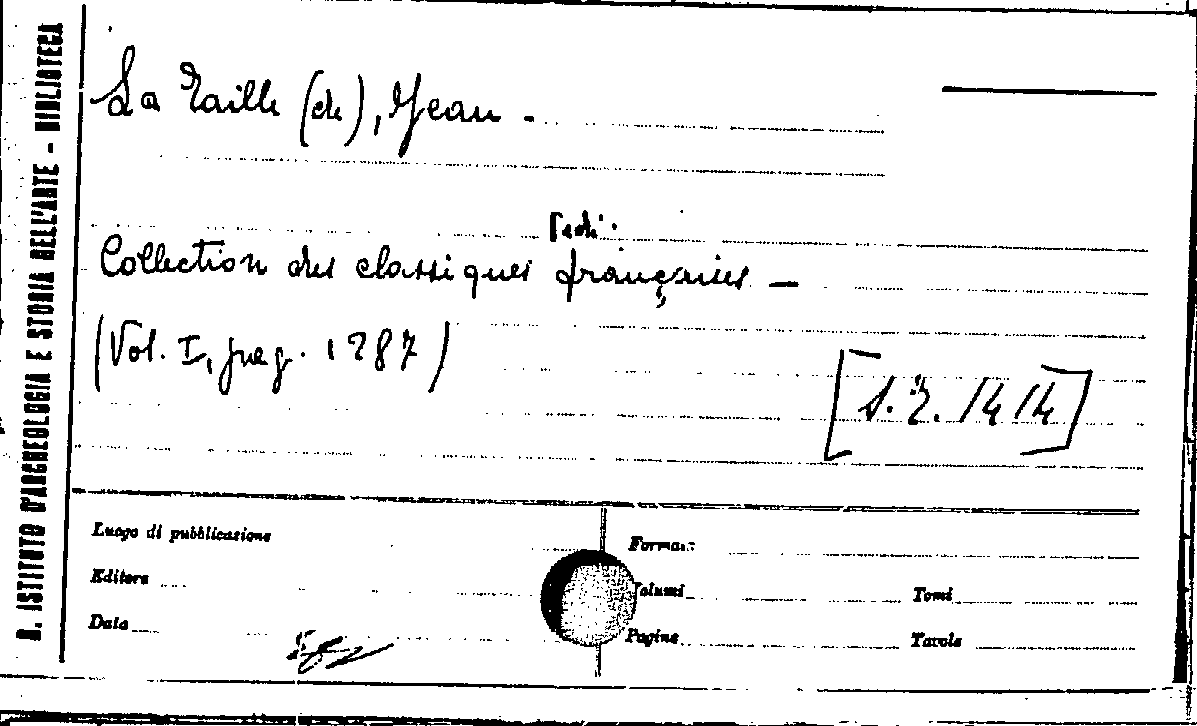 R. ISTITUTO D'ARCHEOLOGIA E STORIA DELL'ARTE - BIBLIOTECA
La Taille (de), Jean -
Collection des classiques françaies -
(Vol. I, pag. 1287)
[S.T. 14/4]
Luogo di pubblicazione
Editore
Data
Formato
Volumi
Tomi
Pagine
Tavole